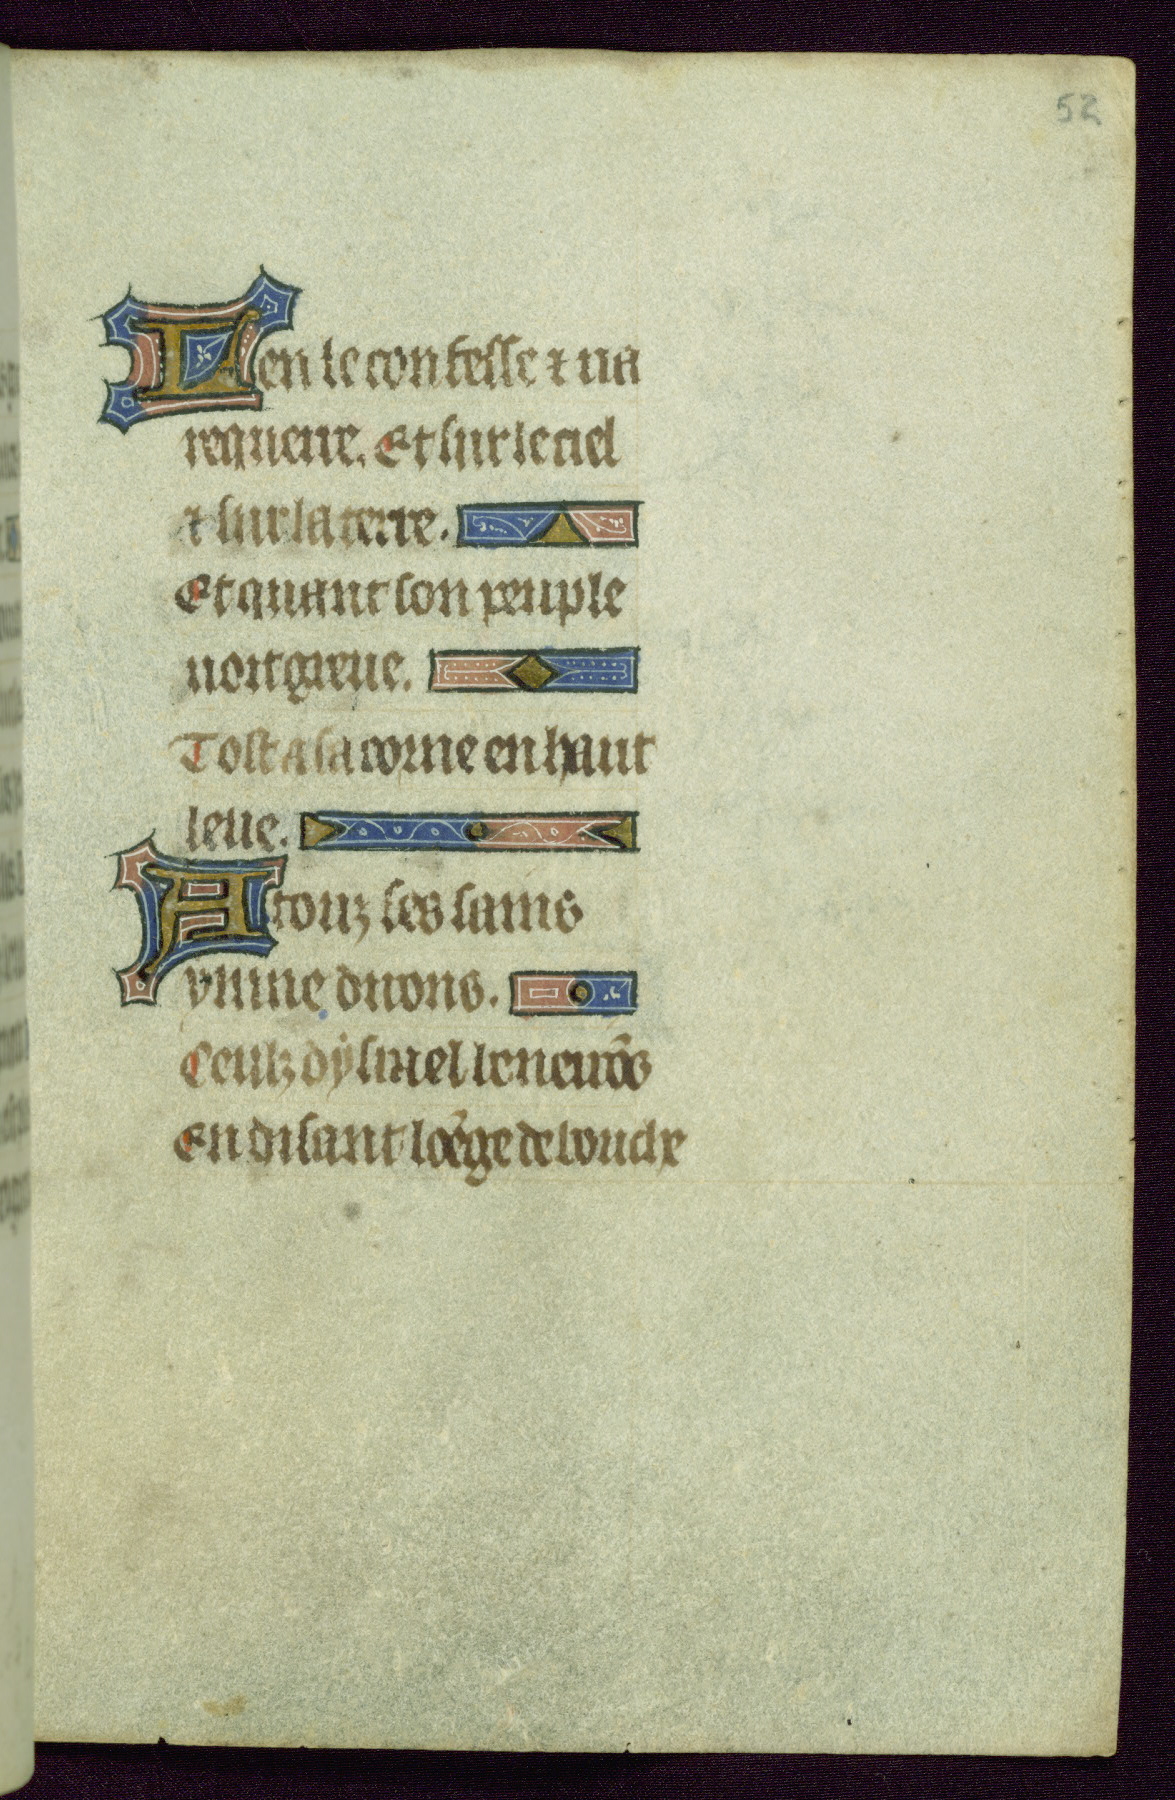 52
Len le confesse ⁊ ua
requerre. Et sur le ciel
⁊ sur la terre.
Et quant son peuple
uoit greue.
Tost a sa corne en haut
leue.
A touz ses sains
ymne duons.
Ceulz dysrael leneurōs
En disant loēge de bouche